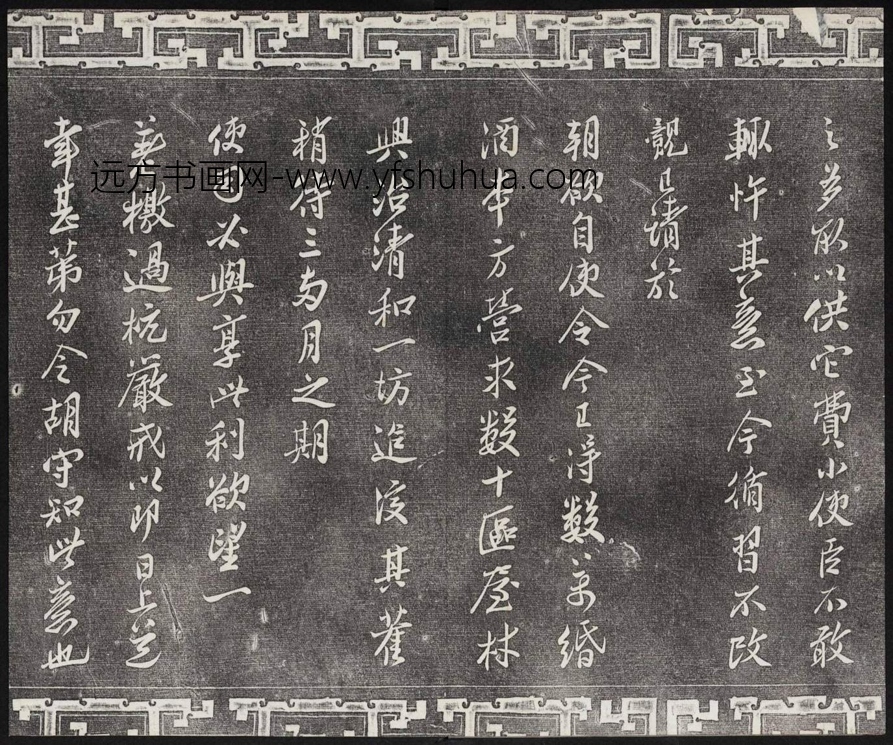 之多取以供它費小使臣不敢
輒忤其意至今循習不改
親已請於
朝欲自使令今已得數千緡
酒本方營求數十區屋材
興治清和一坊追復其舊
稍待三两月之期
使司必與享此利欲望一
檄過杭嚴戒以即日上道
幸甚第勿令胡守知此意也
远方书画网-www.yfshuhua.com